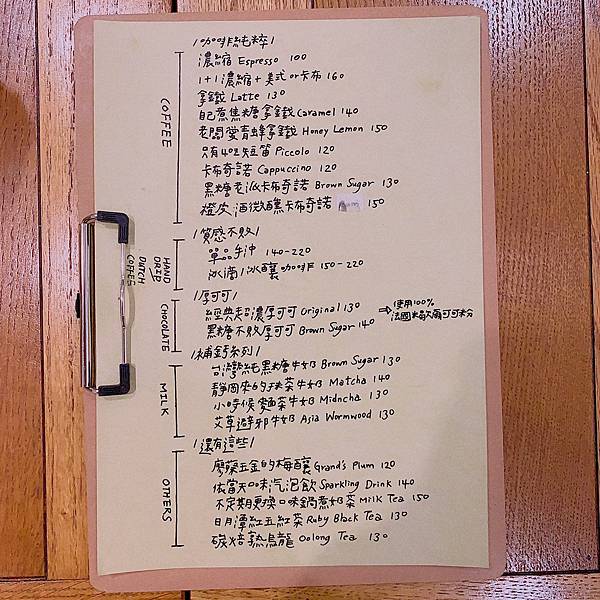 /咖啡純粹/
COFFEE
濃縮 Espresso 100
1+1濃縮+美式or卡布 160
拿鐵 Latte 130
自煮焦糖拿鐵 Caramel 140
老闆愛青蜂拿鐵 Honey Lemon 150
只有4oz短笛 Piccolo 120
卡布奇諾 Cappuccino 120
黑糖老派卡布奇諾 Brown Sugar 130
橙皮酒微醺卡布奇諾 150
/質感不敗/
HAND DRIP
DUTCH COFFEE
單品手沖 140-220
冰滴/冰釀咖啡 150-220
/厚可可/
CHOCOLATE
經典超濃厚可可 Original 130
黑糖不敗厚可可 Brown Sugar 140
→使用100%
法國米歇爾可可粉
/補鈣系列/
MILK
台灣純黑糖牛奶 Brown Sugar 130
靜岡來的抹茶牛奶 Matcha 140
小時候麵茶牛奶 Midncha 130
艾草避邪牛奶 Asia Wormwood 130
/還有這些/
OTHERS
廖蘇五金的梅釀 Grand's Plum 120
依當天口味汽泡飲 Sparkling Drink 140
不定期更換口味鍋煮奶茶 Milk Tea 150
日月潭紅玉紅茶 Ruby Black Tea 130
碳焙熟烏龍 Oolong Tea 130